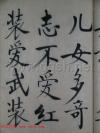 儿女多奇
志不爱红
装爱武装